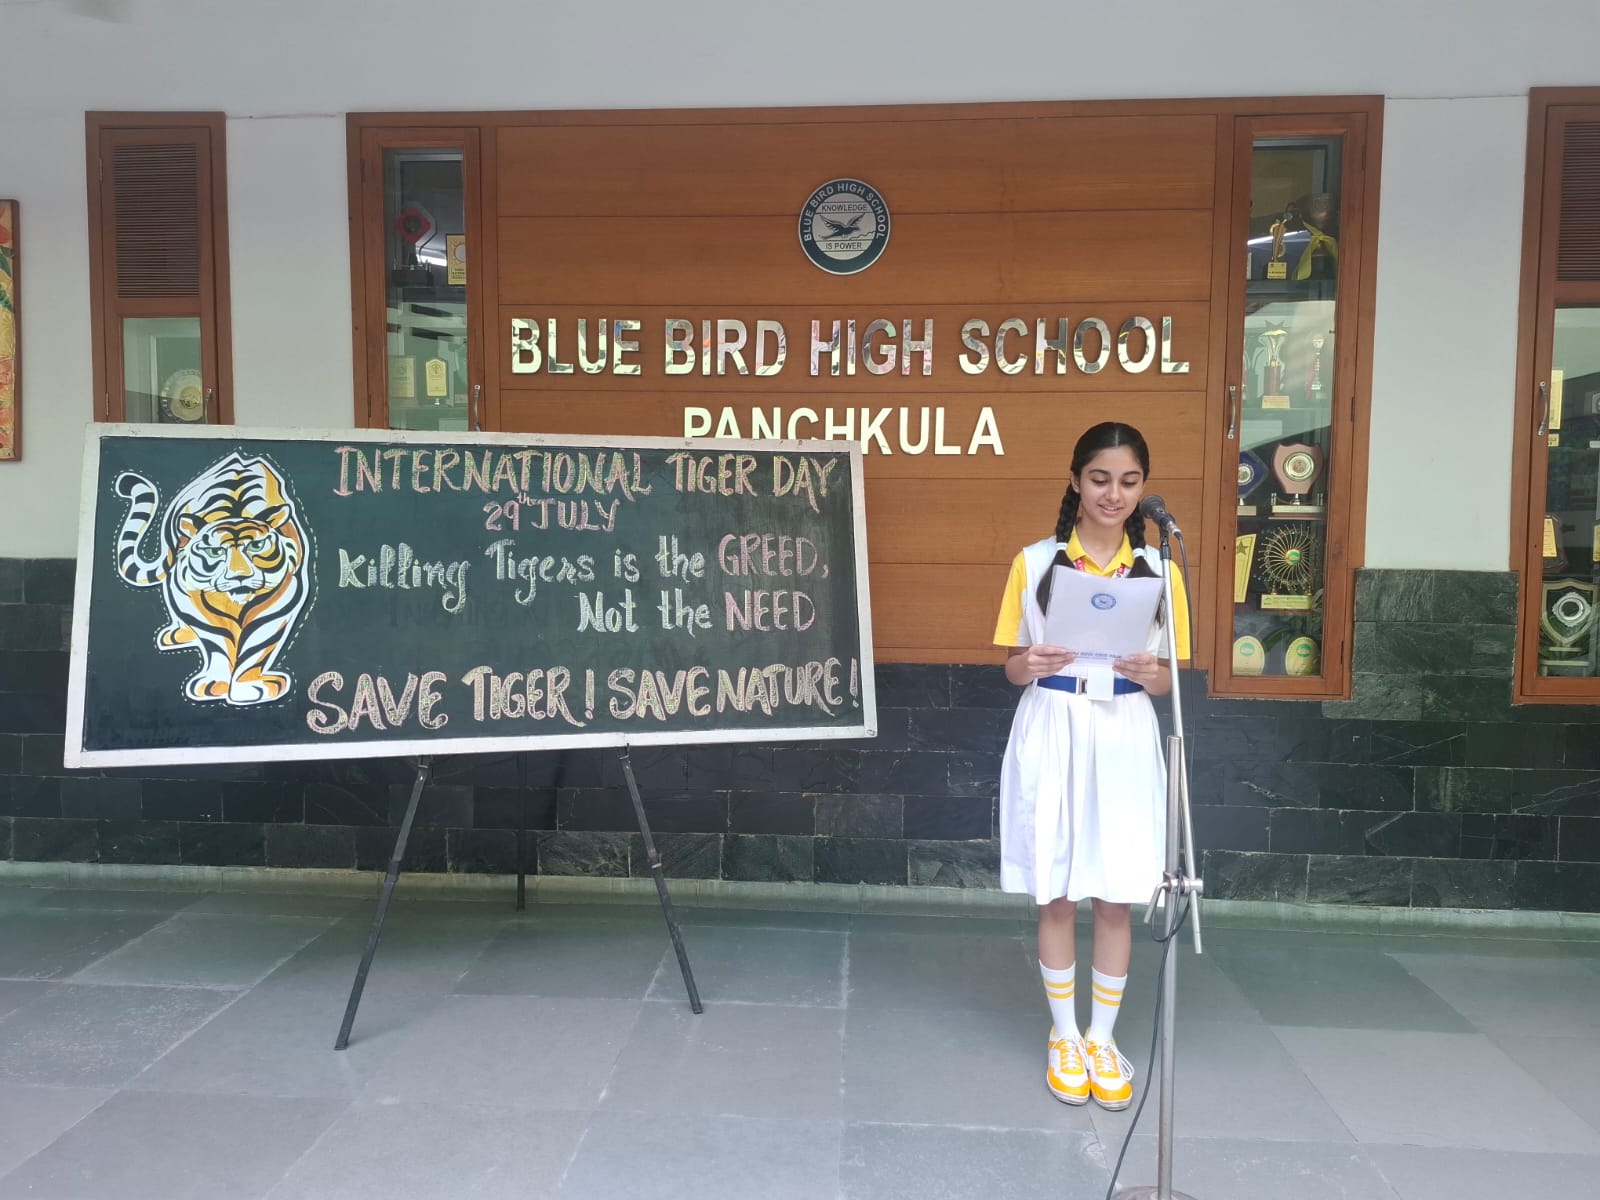 BLUE BIRD HIGH SCHOOL
KNOWLEDGE
IS POWER
BLUE BIRD HIGH SCHOOL
PANCHKULA
INTERNATIONAL TIGER DAY
29th JULY
Killing Tigers is the GREED,
Not the NEED
SAVE TIGER! SAVE NATURE!